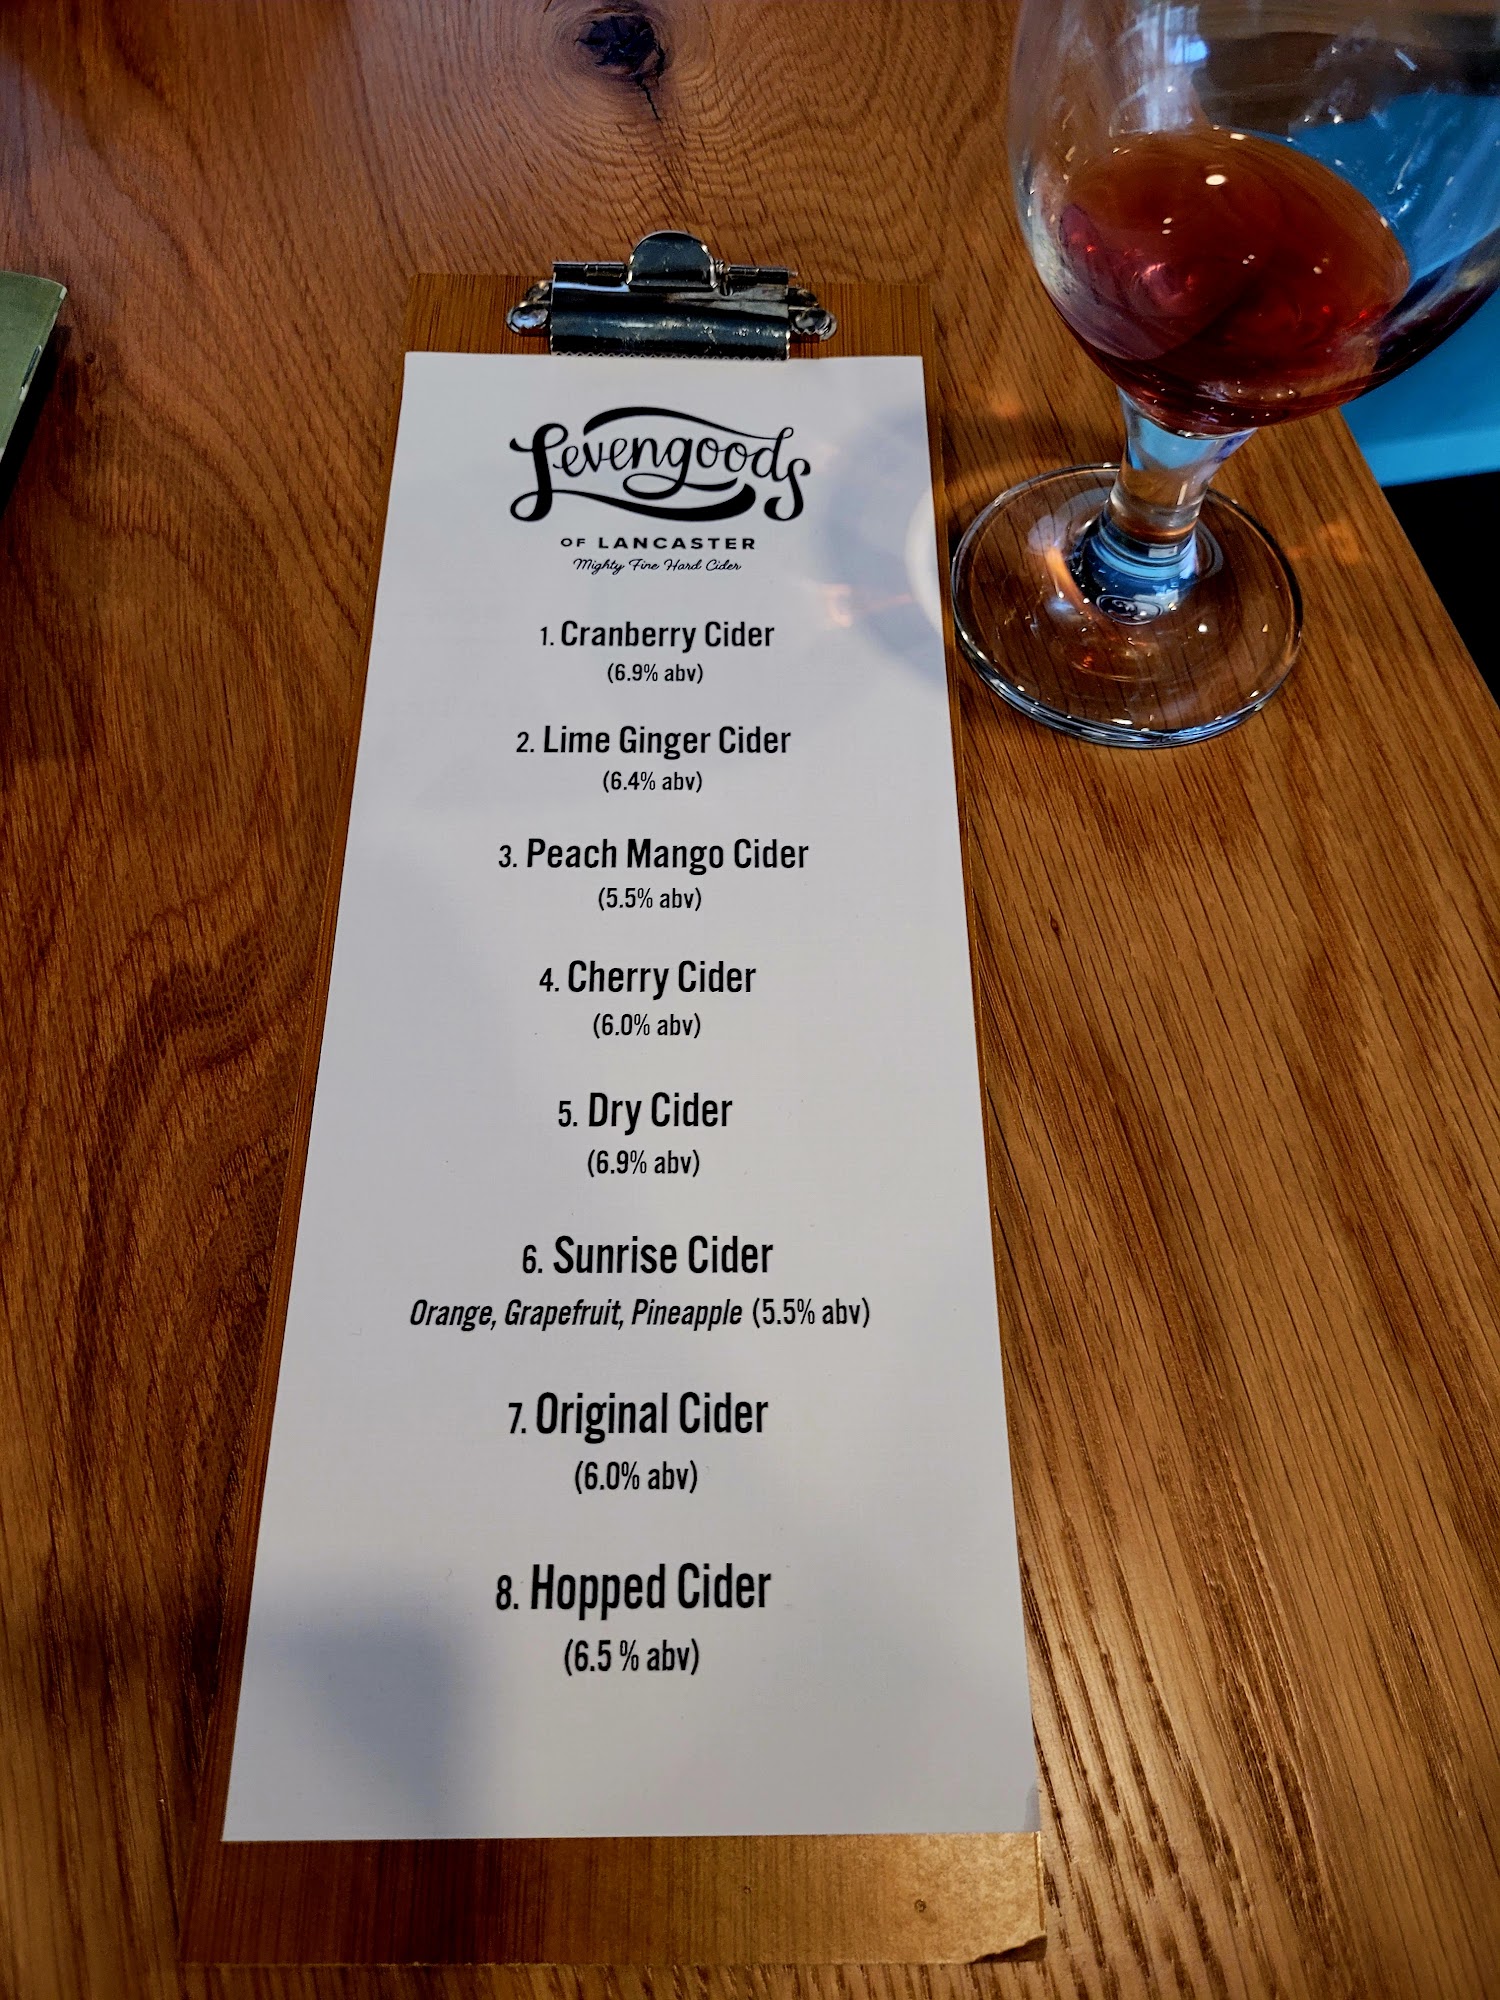 Levengoods
OF LANCASTER
Mighty Fine Hard Cider
1. Cranberry Cider
(6.9% abv)
2. Lime Ginger Cider
(6.4% abv)
3. Peach Mango Cider
(5.5% abv)
4. Cherry Cider
(6.0% abv)
5. Dry Cider
(6.9% abv)
6. Sunrise Cider
Orange, Grapefruit, Pineapple (5.5% abv)
7. Original Cider
(6.0% abv)
8. Hopped Cider
(6.5 % abv)